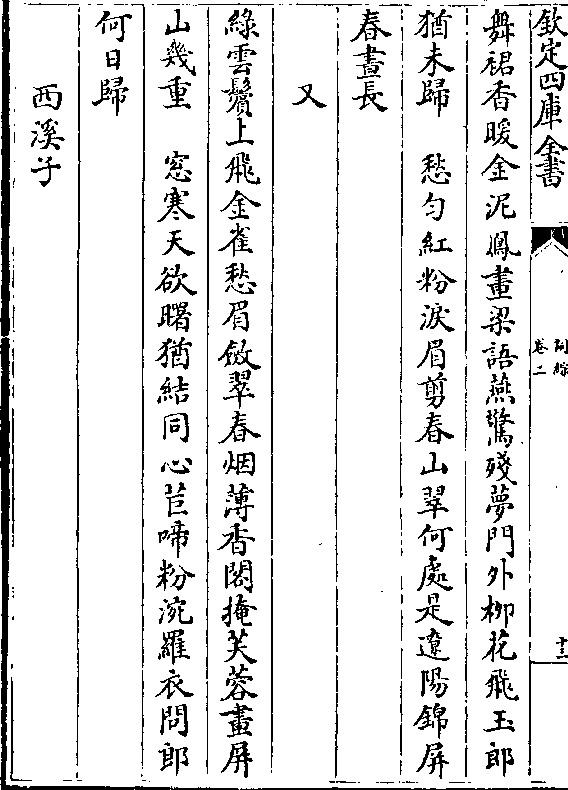 欽定四庫全書
詞綜
卷二
十三
舞裙香暖金泥鳳畫梁語燕驚殘夢門外柳花飛玉郎
猶未歸　愁勻紅粉淚眉剪春山翠何處是遼陽錦屏
春晝長
又
綠雲鬢上飛金雀愁眉斂翠春烟薄香閣掩芙蓉畫屏
山幾重　窓寒天欲曙猶結同心苣啼粉涴羅衣問郎
何日歸
西溪子